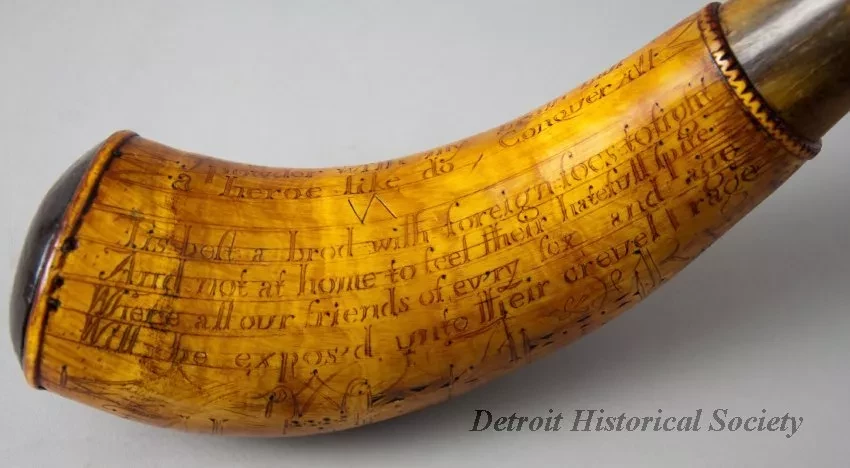 Powder with my
a heroe like do / Conquer All
Tis best a brod with foreign foes to fight
And not at home to feel their hatefull spite
Where all our friends of ev'ry sex and age
Will be expos'd unto their creuel rage
Detroit Historical Society